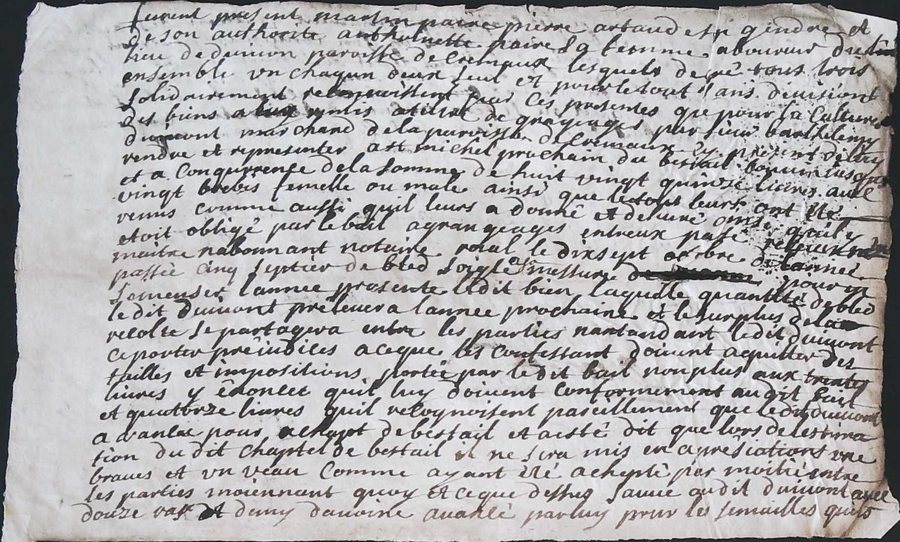 furent present martin paire pierre artaud son gendre et
de son authorite anthoinette paire sa femme laboureur du
lieu de dumon paroisse de cremaux lesquels de gré tous trois
ensemble un chaqun deux seul et pour le tout sans division
solidairement reconnoissent par ces presentes que pour la culture
des biens a eux remis a titre de grangeages par sieur barthelemy
dumont marchand de la paroisse de cremaux cy present de luy
rendre et representer a st michel prochain du bestail bovin jusques
et a concurrence de la somme de huit vingt quinze livres avec
vingt brebis femelle ou male ainsi que le tous leurs ont été
remis comme aussi quil leurs a donné et delivré ainsi quil y
etoit obligé par le bail a grangeages entreux passé
maitre rabonnant notaire roial le dixsept octobre de lannee
passée cinq septier de bled soigle messure de pour en
semenser lannee presente le dit bien laquelle quantité de bled
le dit dumont prelevera lannee prochaine et le surplus de la
recolte se partagera entre les parties nantandant le dit dumont
ce porter prejudices a ceque les confessant doivent aquitter des
tailles et impositions portée par le dit bail non plus aux trentes
livres y énoncet quil luy doivent conformement au dit bail
et quatorze livres quil recognoissent pareillement que le dit dumont
a avancé pour achapt de bestail et a esté dit que lors de lestima
tion du dit chaptel de bestail il ne sera mis en apretiations une
braves et un veau comme ayant été achepté par moitié entre
les parties moiennant quoy et ceque dessus sauve au dit dumont
douze ras et demy davoine avancé par luy pour les semailles